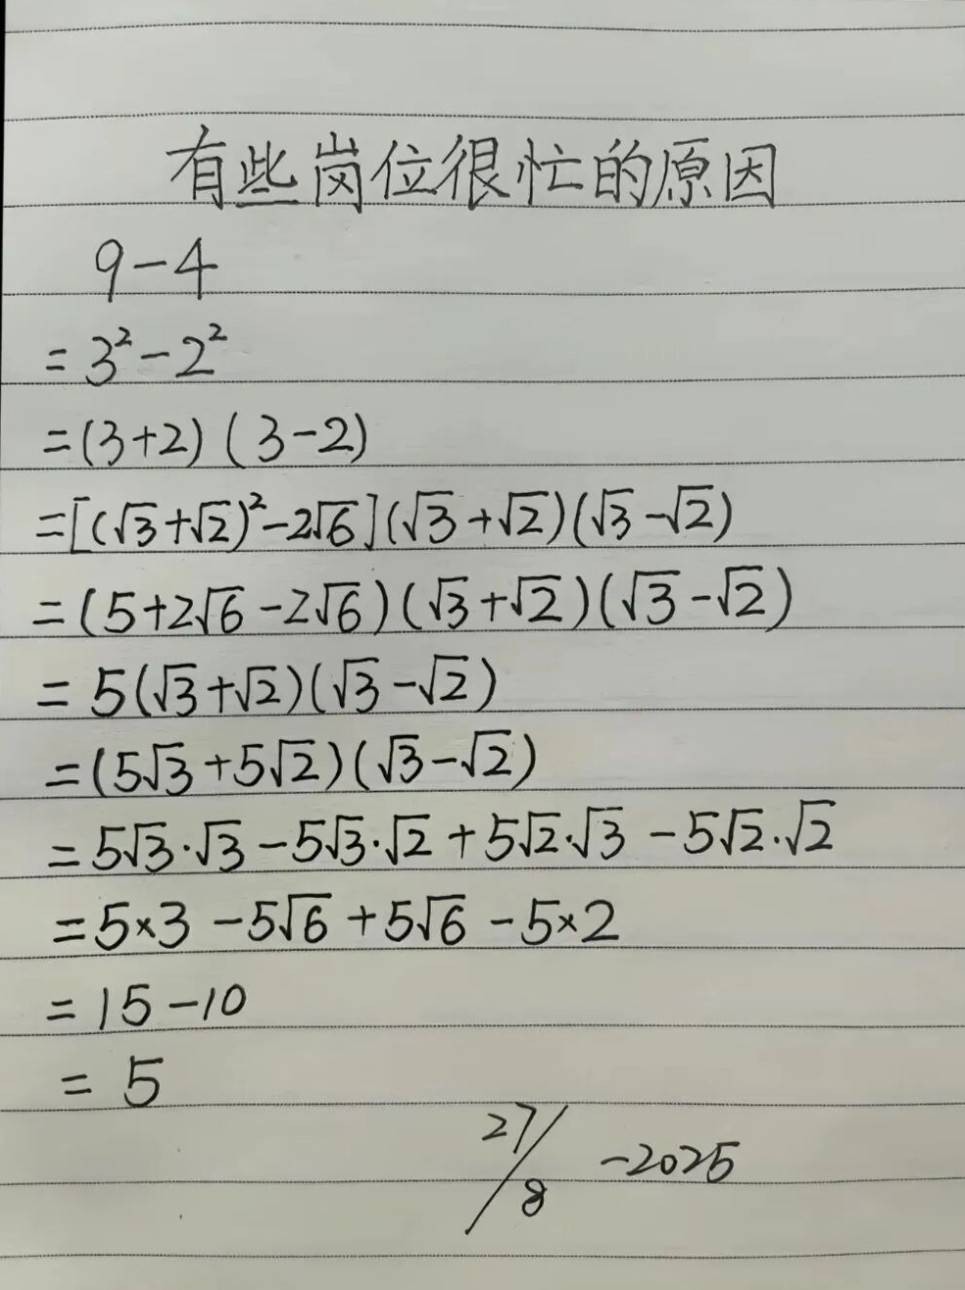 有些岗位很忙的原因
9-4
=3²-2²
=(3+2)(3-2)
=[(√3+√2)²-2√6](√3+√2)(√3-√2)
=(5+2√6-2√6)(√3+√2)(√3-√2)
=5(√3+√2)(√3-√2)
=(5√3+5√2)(√3-√2)
=5√3·√3-5√3·√2+5√2·√3-5√2·√2
=5×3-5√6+5√6-5×2
=15-10
=5
27/8-2025